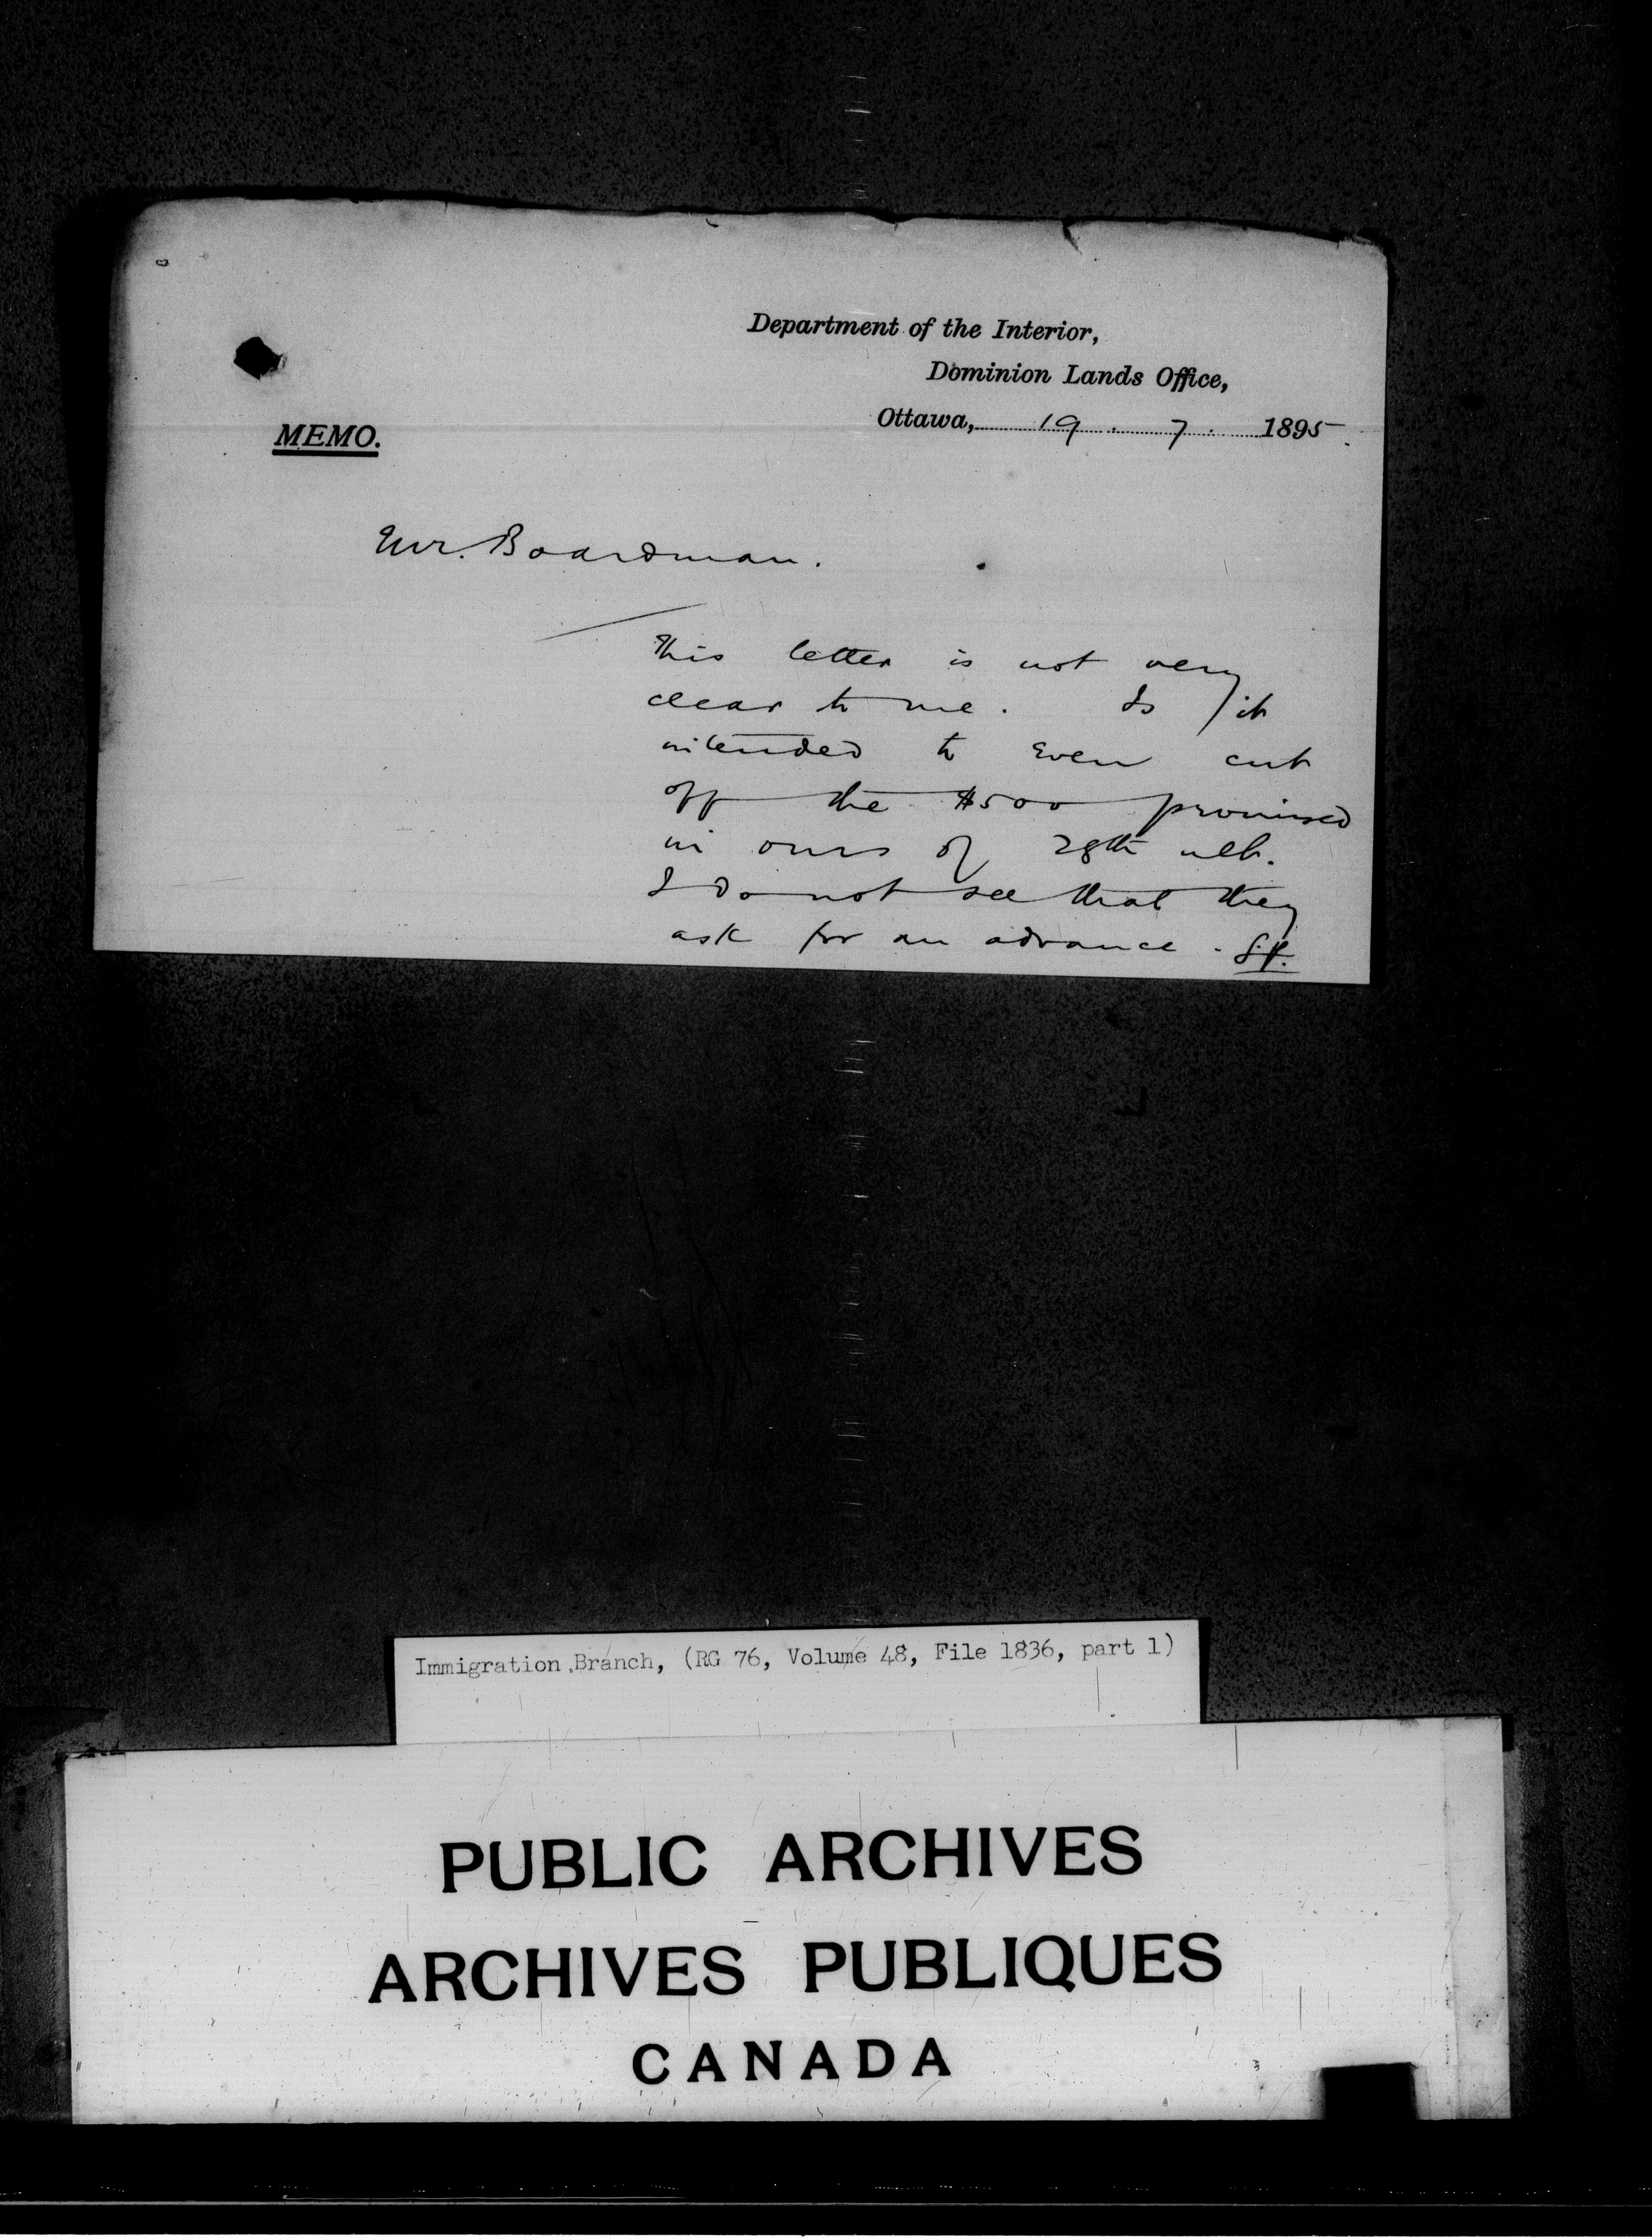 Department of the Interior,
Dominion Lands Office,
Ottawa, 19 . 7 . 1895.
MEMO.
Mr. Boardman.
This letter is not very
clear to me. Is it
intended to even cut
off the $500 promised
in ours of 28th ult.
I do not see that they
ask for an advance.
Immigration Branch, (RG 76, Volume 48, File 1836, part 1)
PUBLIC ARCHIVES
ARCHIVES PUBLIQUES
CANADA